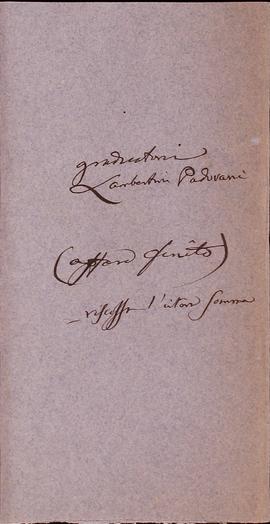 graduatoria
Lambertini Padovani
(affare finito)
riscosse l'intera somma